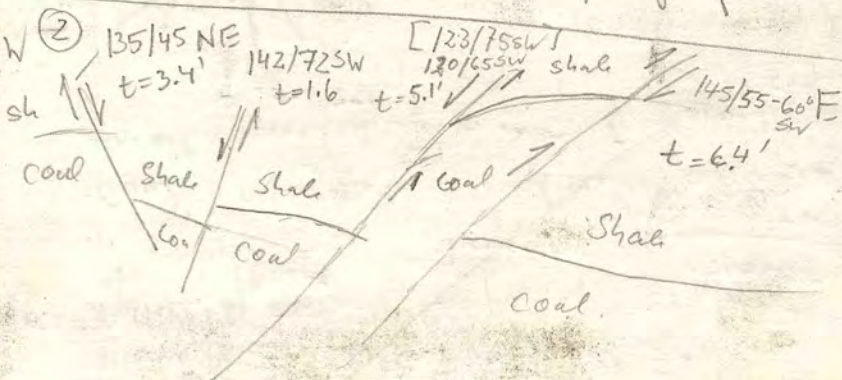 W ② 135/45 NE
t=3.4'
142/72SW
t=1.6
[123/75SW]
120/65SW
t=5.1'
shale
145/55-60° E
SW
t=6.4'
sh
coal
Shale
Coa
Shale
Coal
Coal
Shale
Coal.